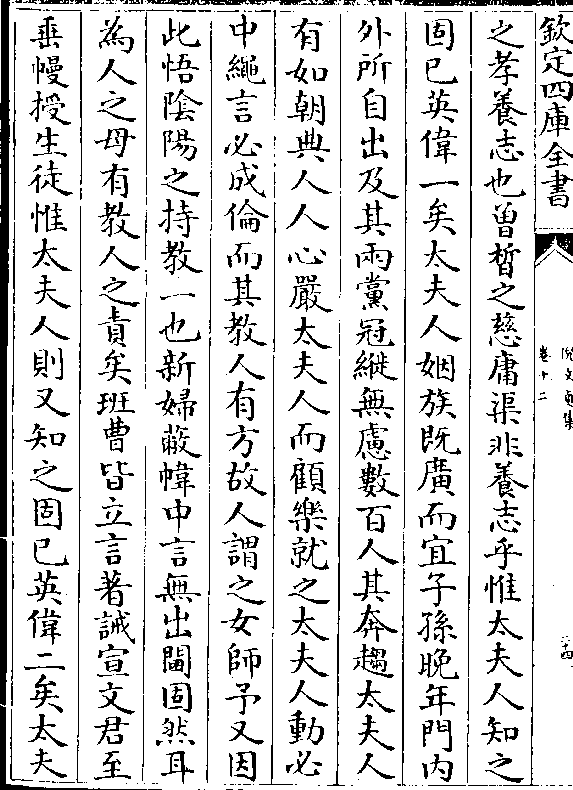 欽定四庫全書
倪文貞集
卷十二
二十四
之孝養志也曾晳之慈庸渠非養志乎惟太夫人知之
固已英偉一矣太夫人姻族既廣而宜子孫晩年門內
外所自出及其兩黨冠縰無慮數百人其奔趨太夫人
有如朝典人人心嚴太夫人而顧樂就之太夫人動必
中繩言必成倫而其教人有方故人謂之女師予又因
此悟隂陽之持教一也新婦蔽幃中言無出閫固然耳
為人之母有教人之責矣班曹皆立言著誡宣文君至
垂幔授生徒惟太夫人則又知之固已英偉二矣太夫